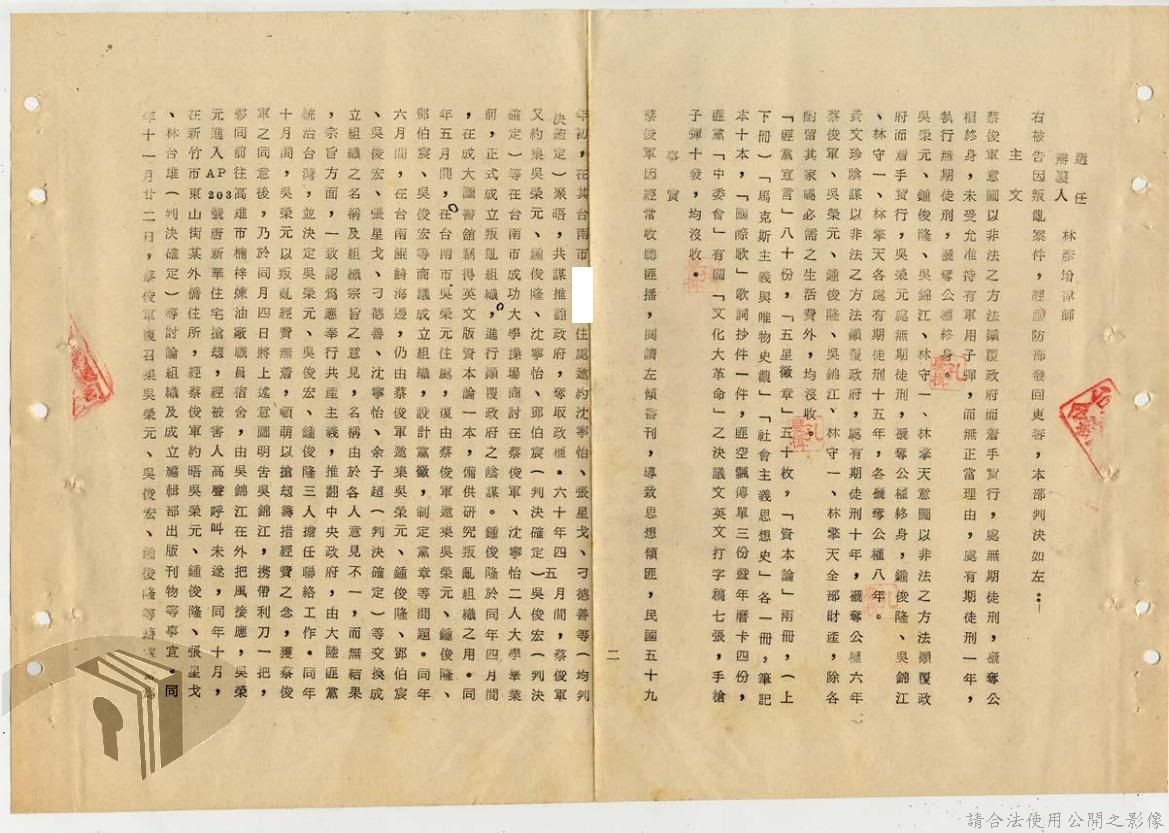 選任
辯護人 林彥增律師
右被告因叛亂案件，經國防部發回更審，本部判決如左：
主文
蔡俊軍意圖以非法之方法顛覆政府而着手實行，處無期徒刑，褫奪公
權終身，未受允准持有軍用子彈，而無正當理由，處有期徒刑一年，
執行無期徒刑，褫奪公權終身。
吳榮元、鍾俊隆、吳錦江、林守一、林擎天意圖以非法之方法顛覆政
府而着手實行，吳榮元處無期徒刑，褫奪公權終身，鍾俊隆、吳錦江
、林守一、林擎天各處有期徒刑十五年，各褫奪公權八年。
黃文珍陰謀以非法之方法顛覆政府，處有期徒刑十年，褫奪公權六年
蔡俊軍、吳榮元、鍾俊隆、吳錦江、林守一、林擎天全部財產，除各
酌留其家屬必需之生活費外，均沒收。
「匪黨宣言」八十份，「五星徽章」五十枚，「資本論」兩冊，（上
下冊）「馬克斯主義與唯物史觀」「社會主義思想史」各一冊，筆記
本十本，「國際歌」歌詞抄件一件，匪空飄傳單三份暨年曆卡四份，
匪黨「中委會」有關「文化大革命」之決議文英文打字稿七張，手槍
子彈十發，均沒收。
事實
蔡俊軍因經常收聽匪播，閱讀左傾書刊，導致思想傾匪，民國五十九
二
年初，在其台南市 住處邀約沈寧怡、張星戈、刁德善等（均判
決確定）聚晤，共謀推翻政府，奪取政權。六十年四五月間，蔡俊軍
又約集吳榮元、鍾俊隆、沈寧怡、鄧伯宸（判決確定）吳俊宏（判決
確定）等在台南市成功大學操場商討在蔡俊軍、沈寧怡二人大學畢業
前，正式成立叛亂組織，進行顛覆政府之陰謀。鍾俊隆於同年四月間
，在成大圖書館竊得英文版資本論一本，備供研究叛亂組織之用。同
年五月間，在台南市吳榮元住處，復由蔡俊軍邀集吳榮元、鍾俊隆、
鄧伯宸、吳俊宏等商議成立組織，設計黨徽，制定黨章等問題。同年
六月間，在台南鯤鯓海邊，仍由蔡俊軍邀集吳榮元、鍾俊隆、鄧伯宸
、吳俊宏、張星戈、刁德善、沈寧怡、余子超（判決確定）等交換成
立組織之名稱及組織宗旨之意見，名稱由於各人意見不一，而無結果
，宗旨方面，一致認為應奉行共產主義，推翻中央政府，由大陸匪黨
統治台灣，並決定吳榮元、吳俊宏、鍾俊隆三人擔任聯絡工作。同年
十月間，吳榮元以叛亂經費無着，頓萌以搶刼籌措經費之念，獲蔡俊
軍之同意後，乃於同月四日將上述意圖明告吳錦江，携帶利刀一把，
夥同前往高雄市楠梓煉油廠職員宿舍，由吳錦江在外把風接應，吳榮
元進入AP203號唐新華住宅搶刼，經被害人高聲呼叫未遂，同年十月，
在新竹市東山街某外僑住所，經蔡俊軍約晤吳榮元、鍾俊隆、張星戈
、林台雄（判決確定）等討論組織及成立編輯部出版刊物等事宜。同
年十一月廿二日，蔡俊軍復召集吳榮元、吳俊宏、鍾俊隆等
請合法使用公開之影像